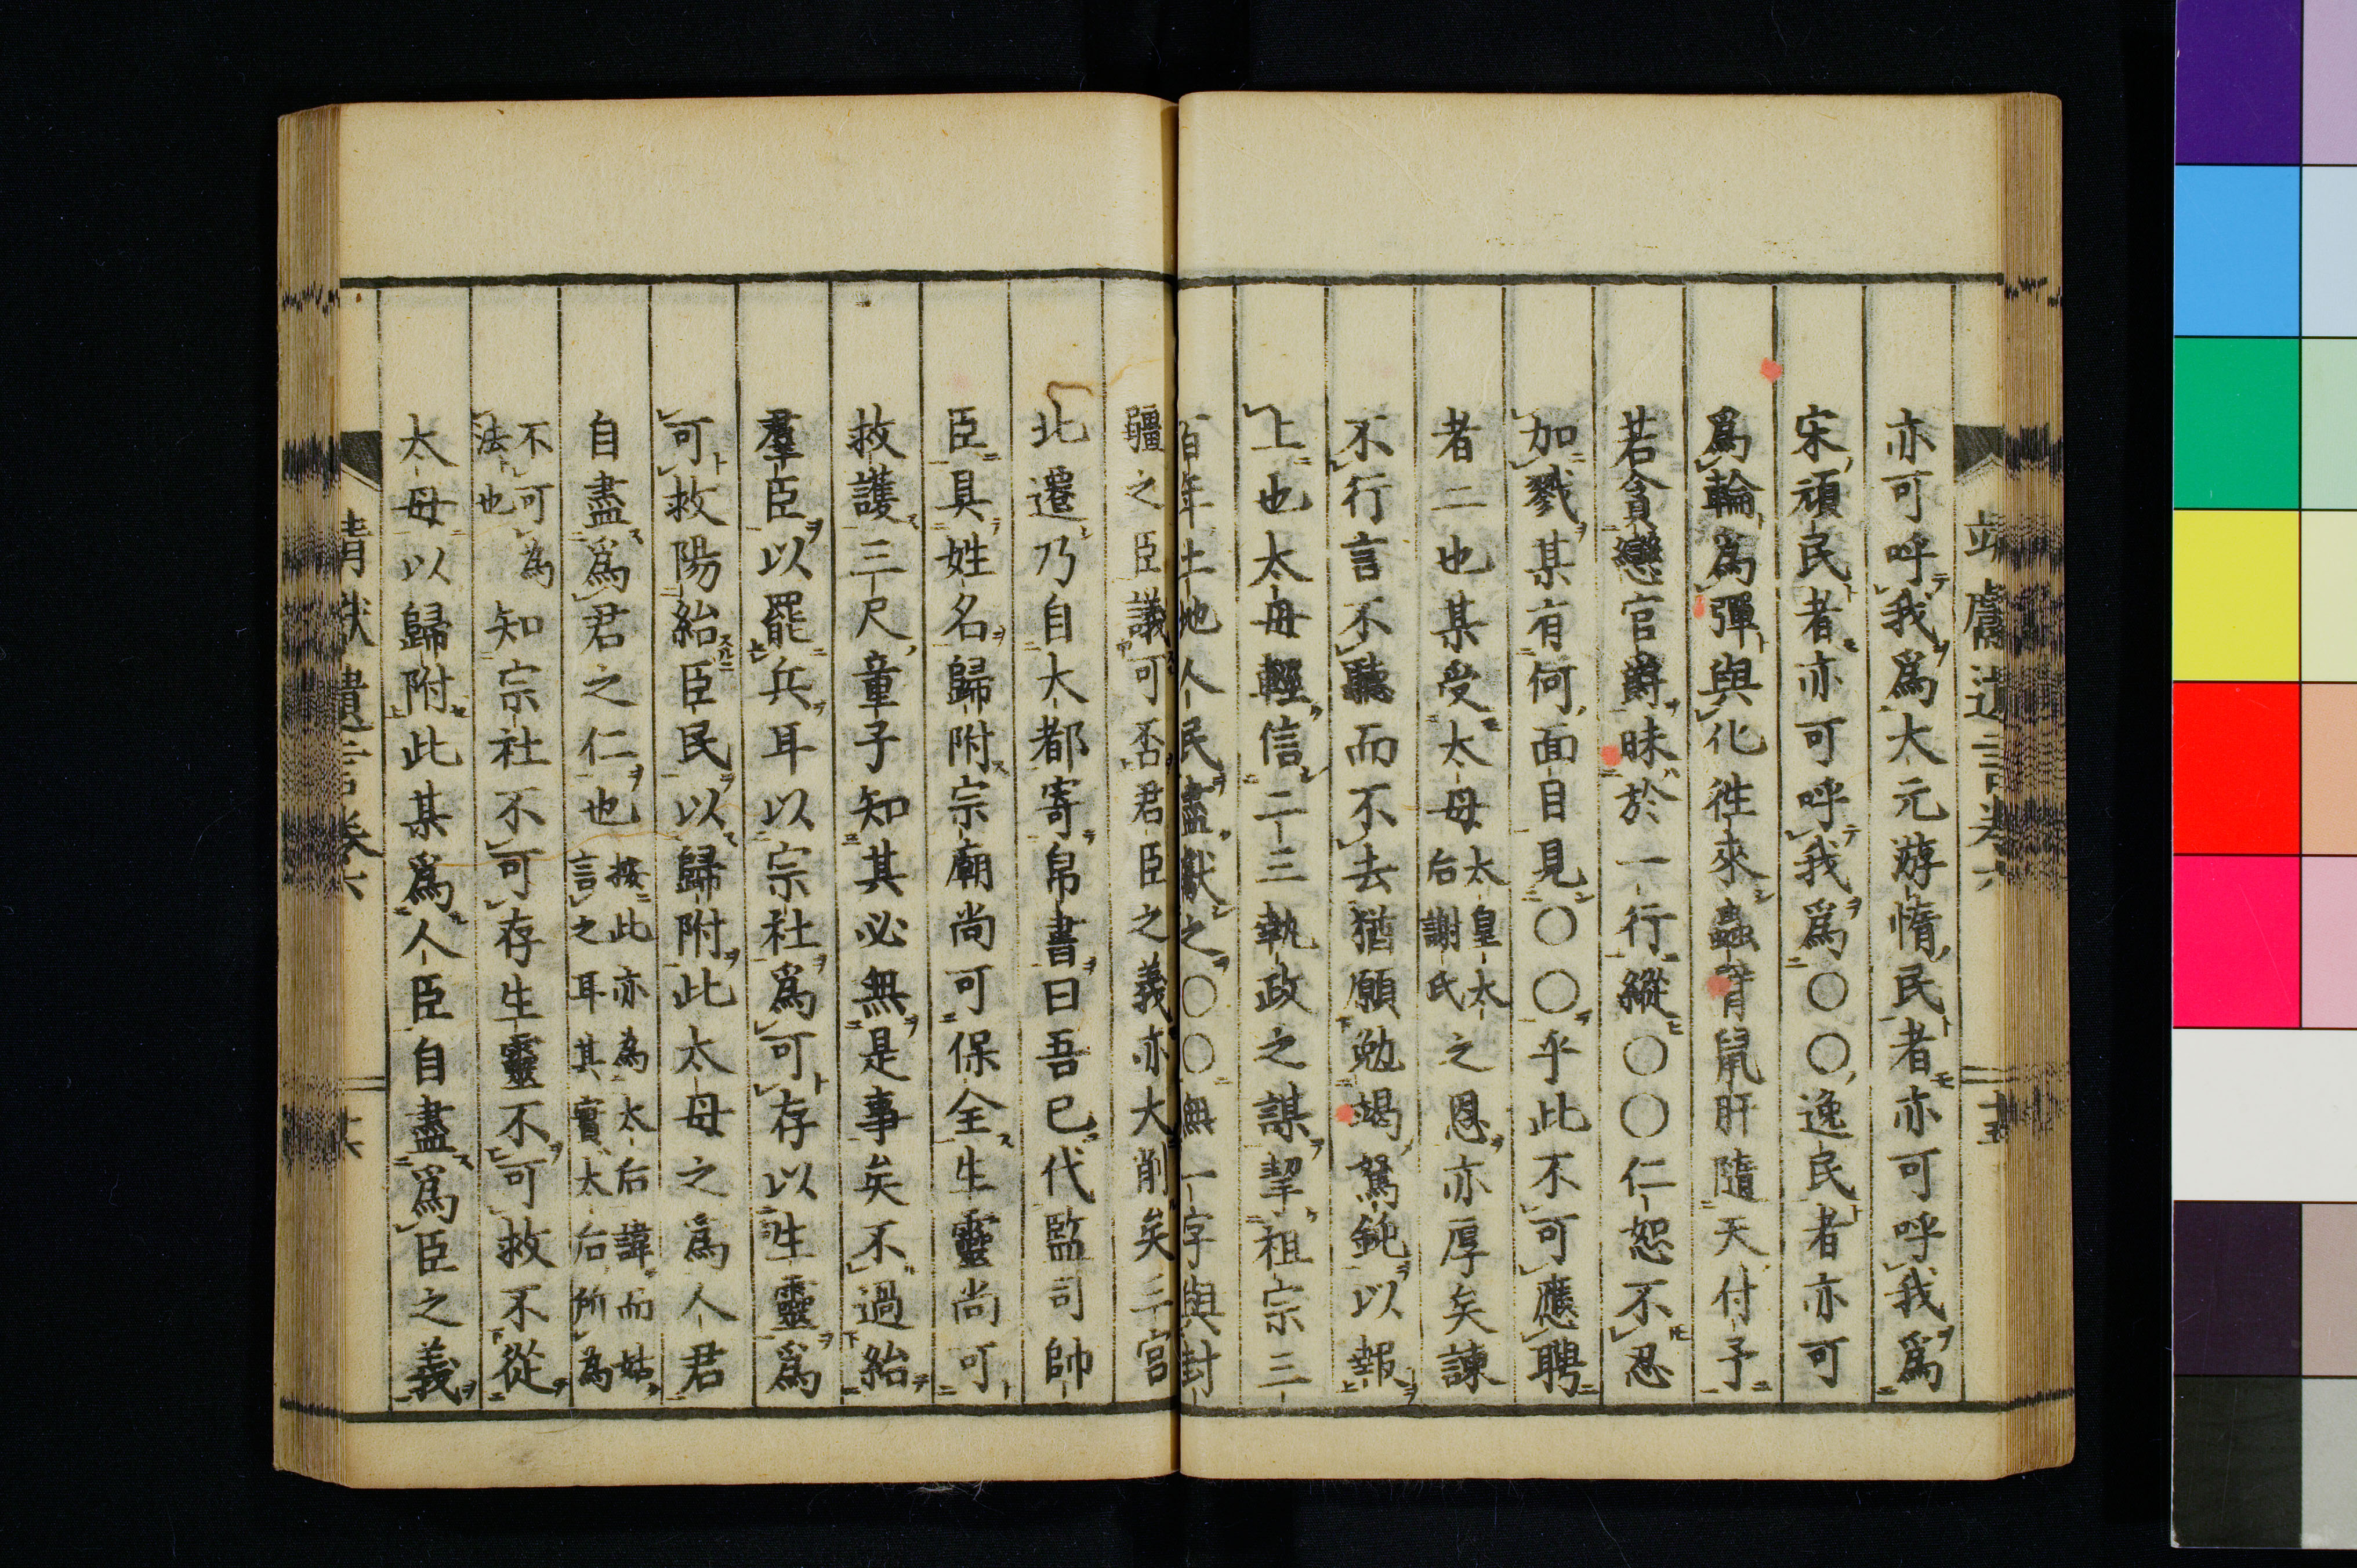 亦可呼我爲大元游惰民者亦可呼我爲
宋頑民者亦可呼我爲〇〇逸民者亦可
爲輪爲彈與化徃來蟲臂鼠肝隨天付予
若貪戀官爵昧於一行縱〇〇仁恕不忍
加戮某有何面目見〇〇乎此不可應聘
者二也某受太母太皇太后謝氏之恩亦厚矣諫
不行言不聽而不去猶願勉竭駑鈍以報
上也太母輕信二三執政之謀挈祖宗三
百年土地人民盡獻之〇〇無一字與封
疆之臣議可否君臣之義亦大削矣三宮
北遷乃自大都寄帛書曰吾已代監司帥
臣具姓名歸附宗廟尚可保全生靈尚可
救護三尺童子知其必無是事矣不過紿
羣臣以罷兵耳以宗社爲可存以生靈爲
可救陽紿臣民以歸附此太母之爲人君
自盡爲君之仁也按此亦為太后諱而姑言之耳其實太后所為
不可為法也知宗社不可存生靈不可救不從
太母以歸附此某爲人臣自盡爲臣之義
靖獻遺言卷六